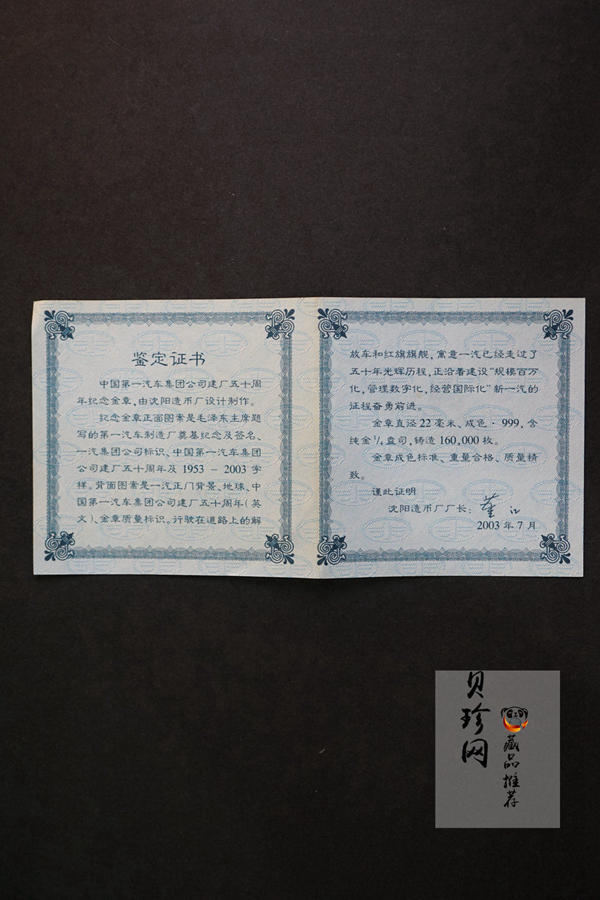 鉴定证书
中国第一汽车集团公司建厂五十周
年纪念金章,由沈阳造币厂设计制作。
纪念金章正面图案是毛泽东主席题
写的第一汽车制造厂奠基纪念及签名、
一汽集团公司标识、中国第一汽车集团
公司建厂五十周年及 1953 – 2003 字
样。背面图案是一汽正门背景、地球、中
国第一汽车集团公司建厂五十周年(英
文)、金章质量标识。行驶在道路上的解
放车和红旗旗舰,寓意一汽已经走过了
五十年光辉历程,正沿着建设“规模百万
化,管理数字化,经营国际化”新一汽的
征程奋勇前进。
金章直径 22 毫米、成色·999,含
纯金 1/4 盎司,铸造 160,000 枚。
金章成色标准、重量合格、质量精
致。
谨此证明
沈阳造币厂厂长:
2003 年 7 月
贝珍网
藏品推荐